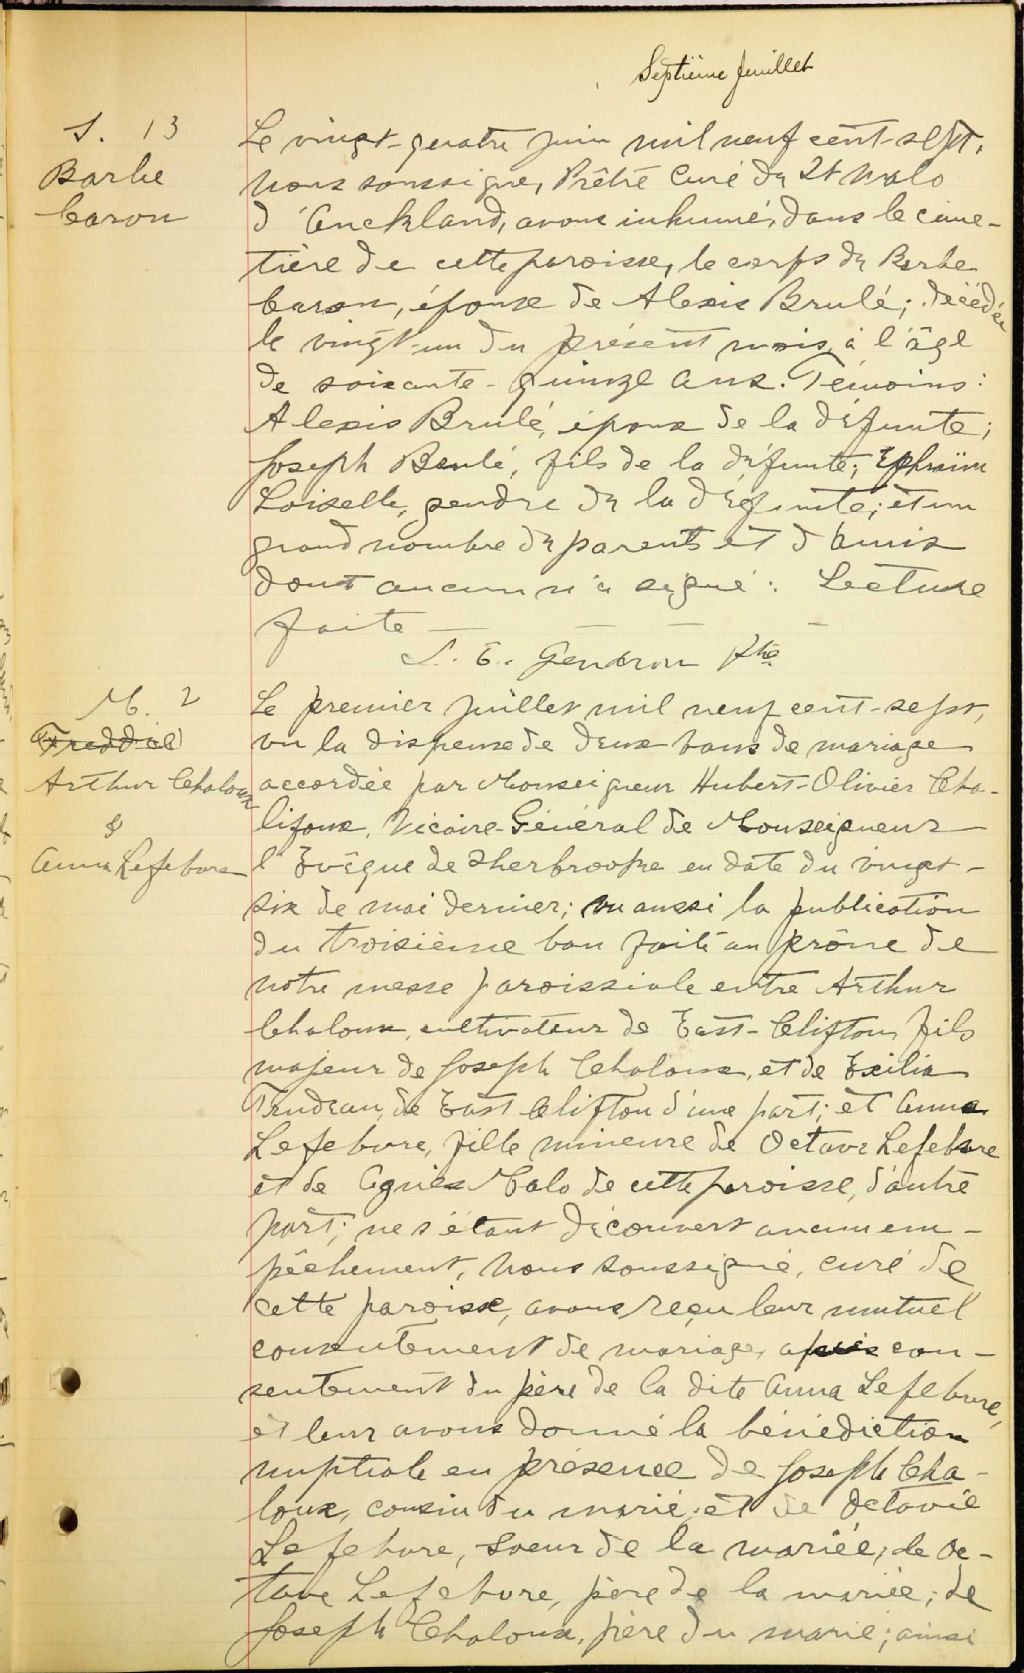 Septième feuillet
S. 13
Barbe
Caron
Le vingt-quatre juin mil neuf cent-sept,
nous soussigné, Prêtre Curé de St Malo
d'Auckland, avons inhumé, dans le cime-
tière de cette paroisse, le corps de Barbe
Caron, épouse de Alexis Brulé; décédée
le vingt-un du présent mois, à l'âge
de soixante-quinze ans. Témoins:
Alexis Brulé, époux de la défunte;
Joseph Brulé, fils de la défunte; Ephraïm
Loiselle, gendre de la défunte; et un
grand nombre de parents et d'amis
dont aucun n'a signé. Lecture
faite — — — —
J. E. Gendron Ptre
M. 2
Freddie
Arthur Chaloux
&
Anna Lefebvre
Le premier juillet mil neuf cent-sept,
vu la dispense de deux bans de mariage
accordée par Monseigneur Hubert-Olivier Cha-
lifoux, Vicaire-Général de Monseigneur
l'Evêque de Sherbrooke en date du vingt-
six de mai dernier; vu aussi la publication
du troisième ban faite au prône de
notre messe paroissiale entre Arthur
Chaloux, cultivateur de East-Clifton, fils
majeur de Joseph Chaloux, et de Exilia
Trudeau, de East Clifton d'une part; et Anna
Lefebvre, fille mineure de Octave Lefebvre
et de Agnès Malo de cette paroisse, d'autre
part; ne s'étant découvert aucun em-
pêchement, nous soussigné, curé de
cette paroisse, avons reçu leur mutuel
consentement de mariage, après con-
sentement du père de la dite Anna Lefebvre,
et leur avons donné la bénédiction
nuptiale en présence de Joseph Cha-
loux, cousin du marié, et de Octavie
Lefebvre, soeur de la mariée; de Oc-
tave Lefebvre, père de la mariée; de
Joseph Chaloux, père du marié; ainsi